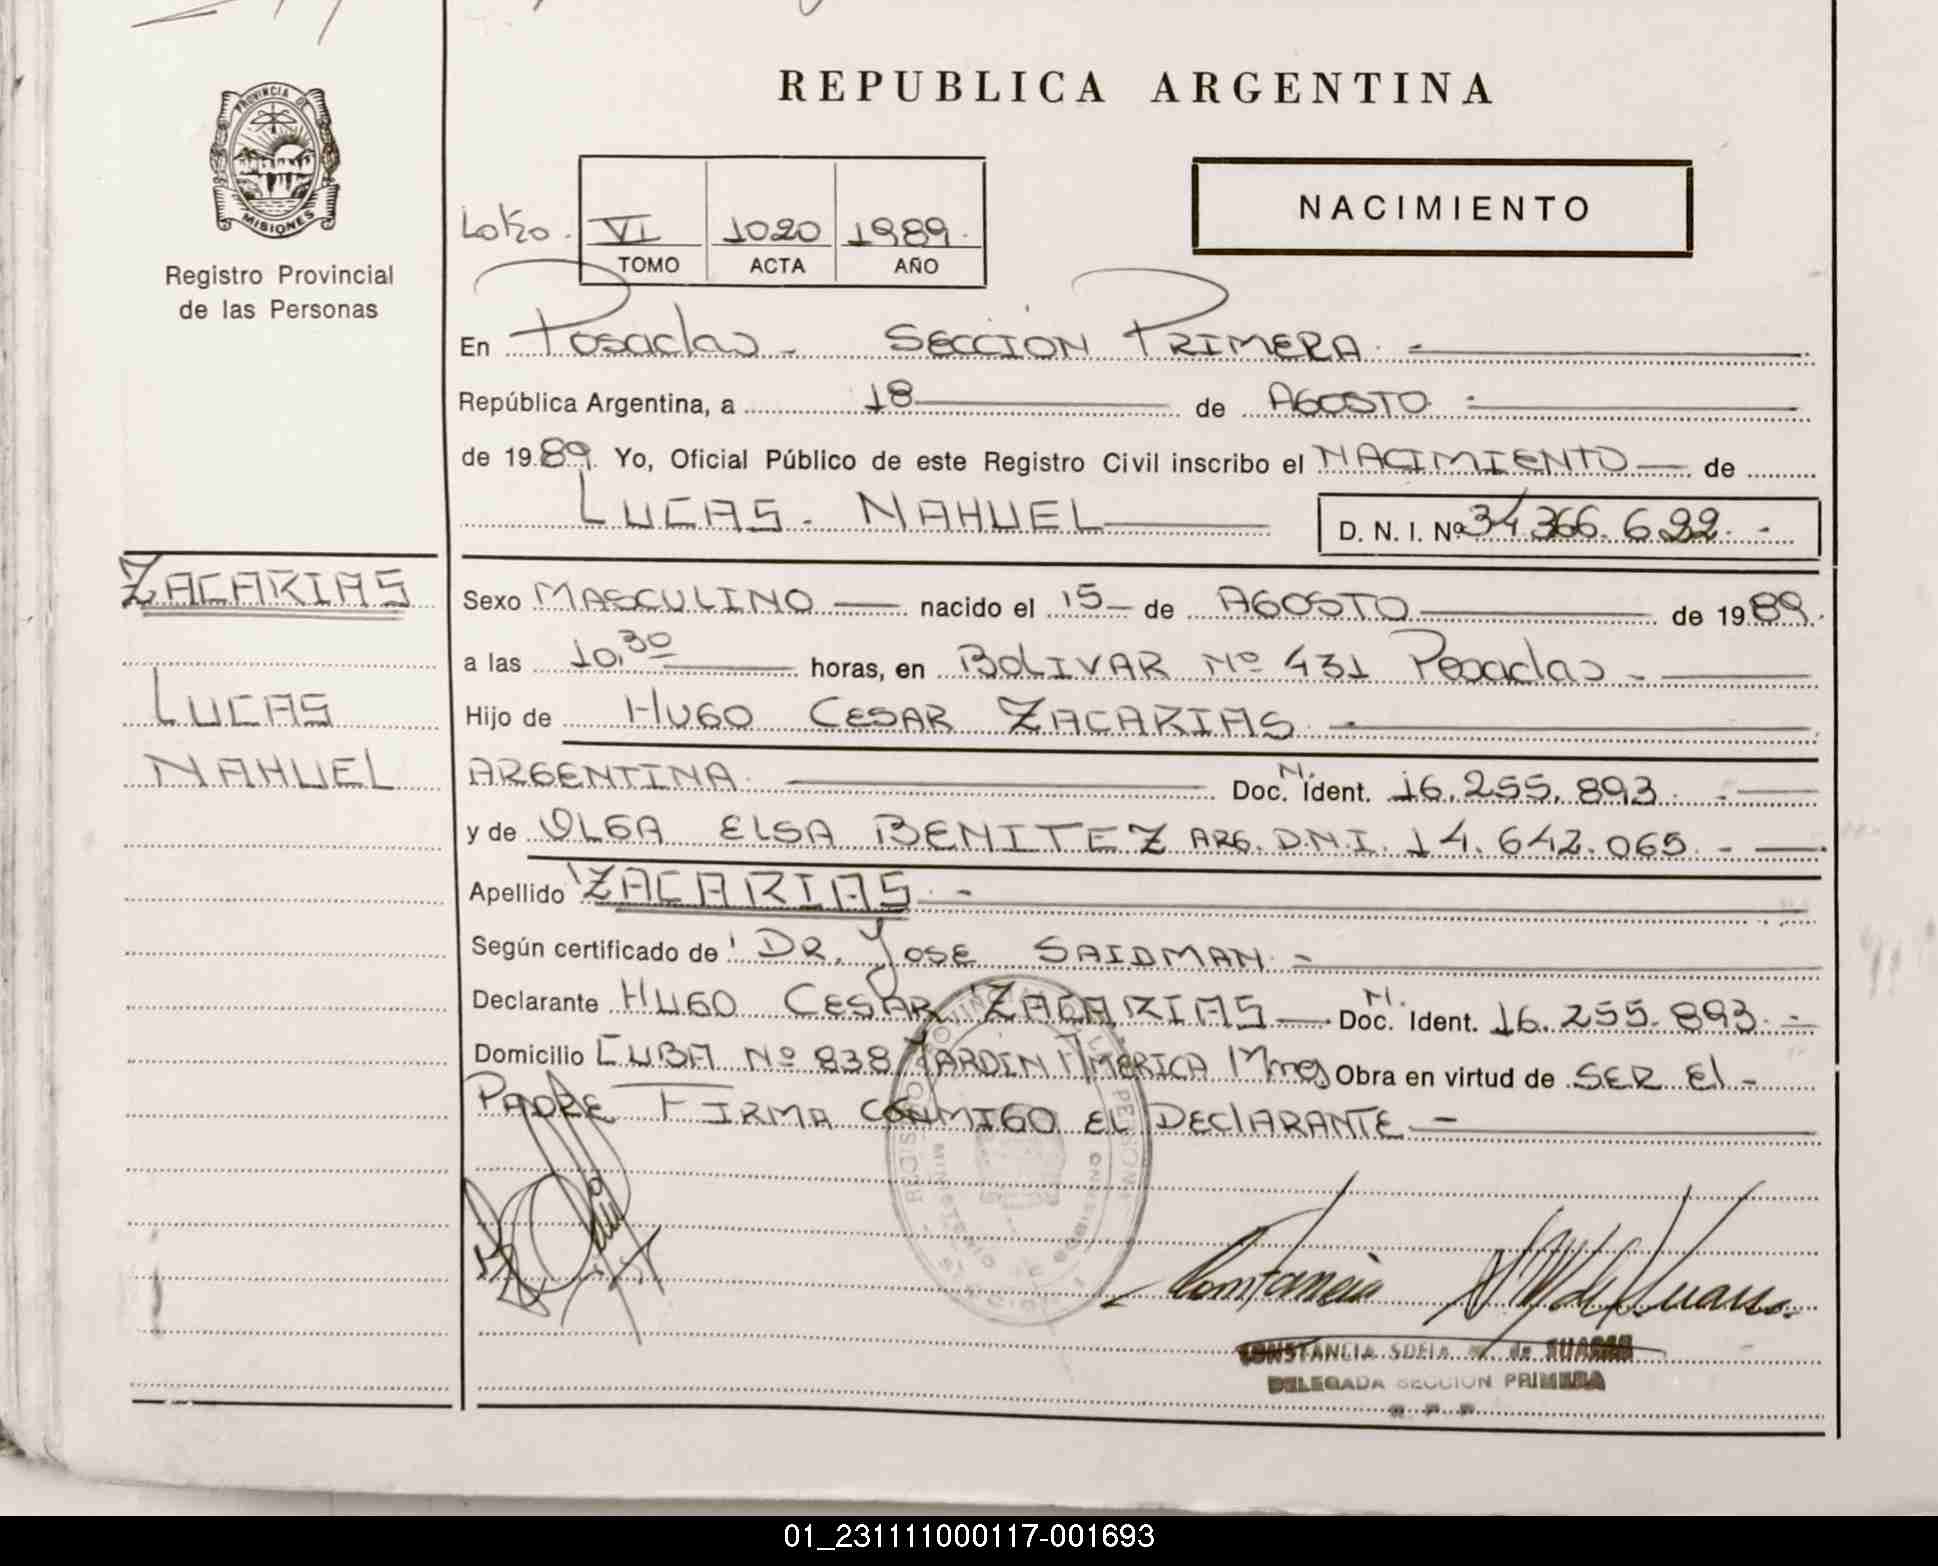 REPUBLICA ARGENTINA
PROVINCIA DE
MISIONES
Registro Provincial
de las Personas
NACIMIENTO
VI 1020 1989.
TOMO ACTA AÑO
En Posadas - SECCION PRIMERA. -
República Argentina, a 18 de AGOSTO. -
de 1989. Yo, Oficial Público de este Registro Civil inscribo el NACIMIENTO de
LUCAS - NAHUEL
D. N. I. Nº 34.366.622. -
ZACARIAS
LUCAS
NAHUEL
Sexo MASCULINO nacido el 15 de AGOSTO de 1989.
a las 10,30 horas, en BOLIVAR Nº 431 Posadas -
Hijo de HUGO CESAR ZACARIAS. -
ARGENTINA. Doc. N. Ident. 16.255.893. -
y de OLGA ELSA BENITEZ ARG. D.N.I. 14.642.065. -
Apellido ZACARIAS. -
Según certificado de DR. JOSE SAIDMAN. -
Declarante HUGO CESAR ZACARIAS Doc. N. Ident. 16.255.893. -
Domicilio CUBA Nº 838 JARDIN AMERICA Mnes Obra en virtud de SER El -
PADRE FIRMA CONMIGO EL DECLARANTE -
CONSTANCIA SOFIA M. de SUAREZ
DELEGADA SECCION PRIMERA
R. P. P.
01_231111000117-001693